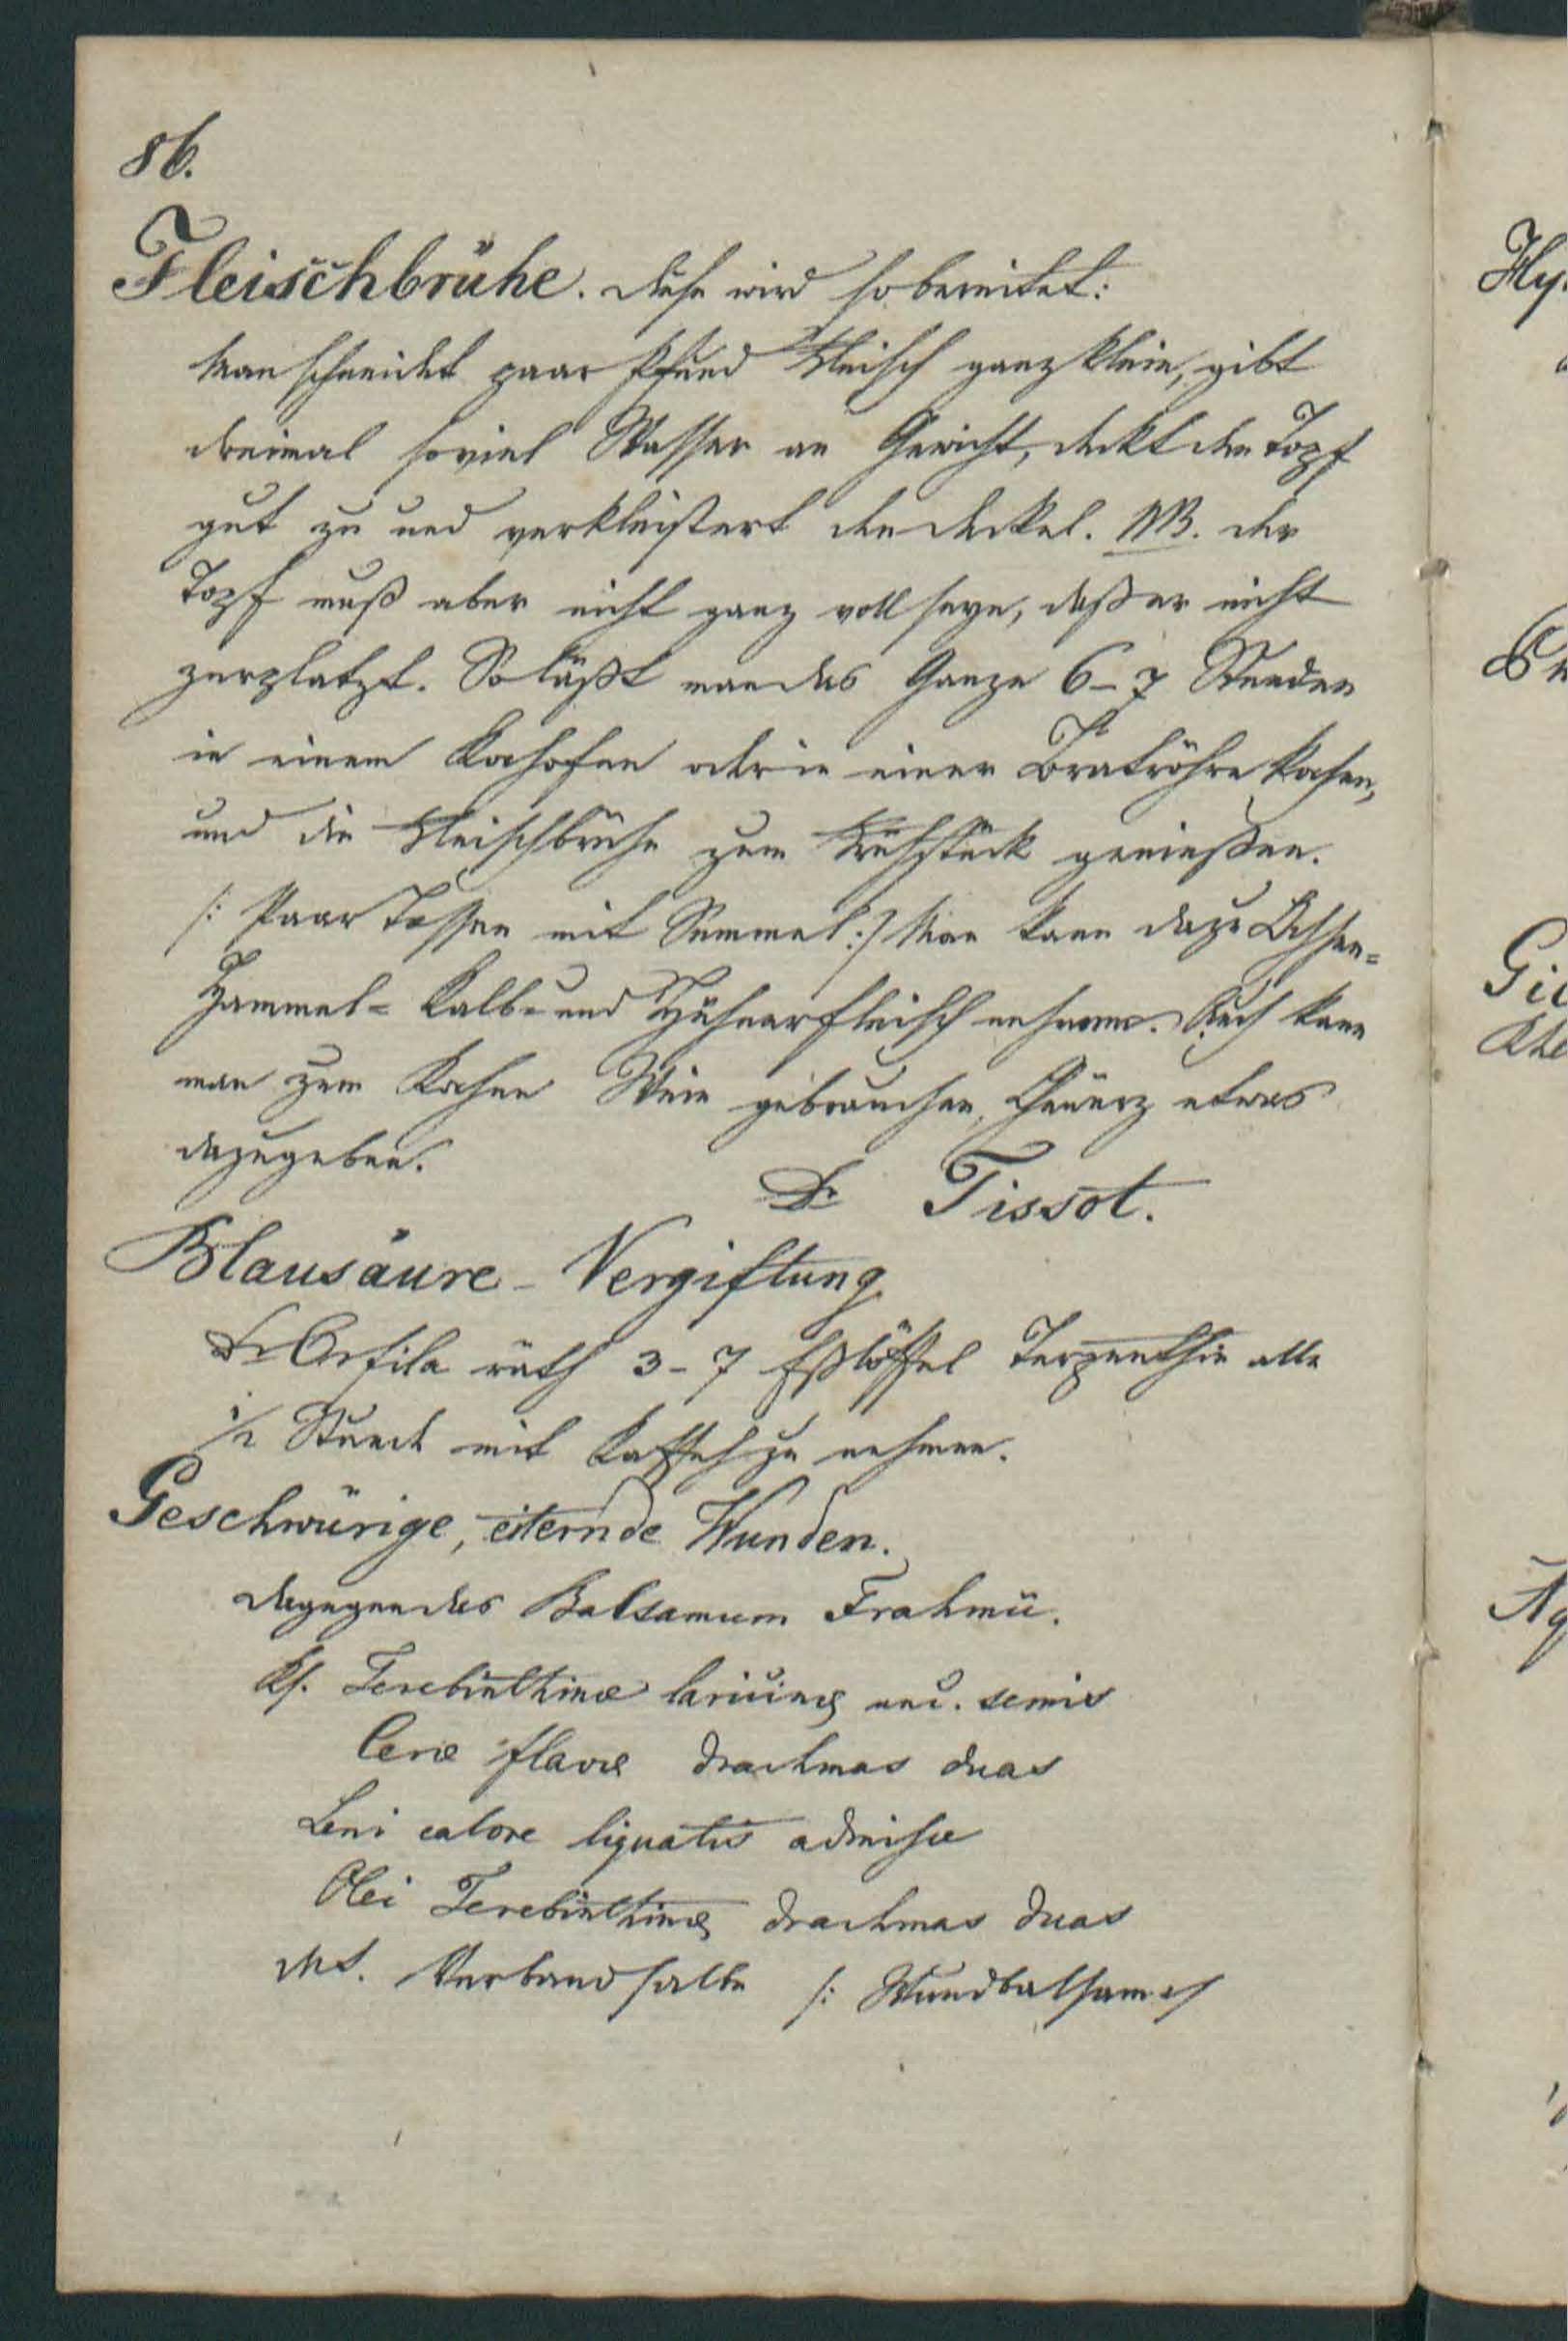 86.
Fleischbrühe. Diese wird so bereitet:
Man schneidet paar Pfund Fleisch ganz klein, gibt
dreimal soviel Wasser an Gewicht, deckt den Topf
gut zu und verkleistert den Deckel. NB. der
Topf muß aber nicht ganz voll seyn, daß er nicht
zerplatzt. So läßt man das Ganze 6-7 Stunden
in einem Kochofen oder in einer Bratröhre kochen,
und die Fleischbrühe zum Frühstück genießen.
/: Paar Tassen mit Semmel :/ Man kann dazu Ochsen=
Hammel= Kalb= und Hühnerfleisch nehmen. Auch kann
man zum Kochen Wein gebrauchen, Gewürz etwas
dazugeben.
Dr Tissot.
Blausäure-Vergiftung
Dr Orfila räth 3-7 Eßlöffel Terpenthin alle
1/2 Stund mit Kaffeh zu nehmen.
Geschwürige, eiternde Wunden.
dagegen das Balsamum Frahmü.
Rp. Terebinthinæ laricinæ unc. semis
Ceræ flavæ drachmas duas
Leni calore liquatis admisce
Olei Terebinthinæ drachmas duas
MS. Verbandsalbe /: Wundbalsam :/
Hy
Gi